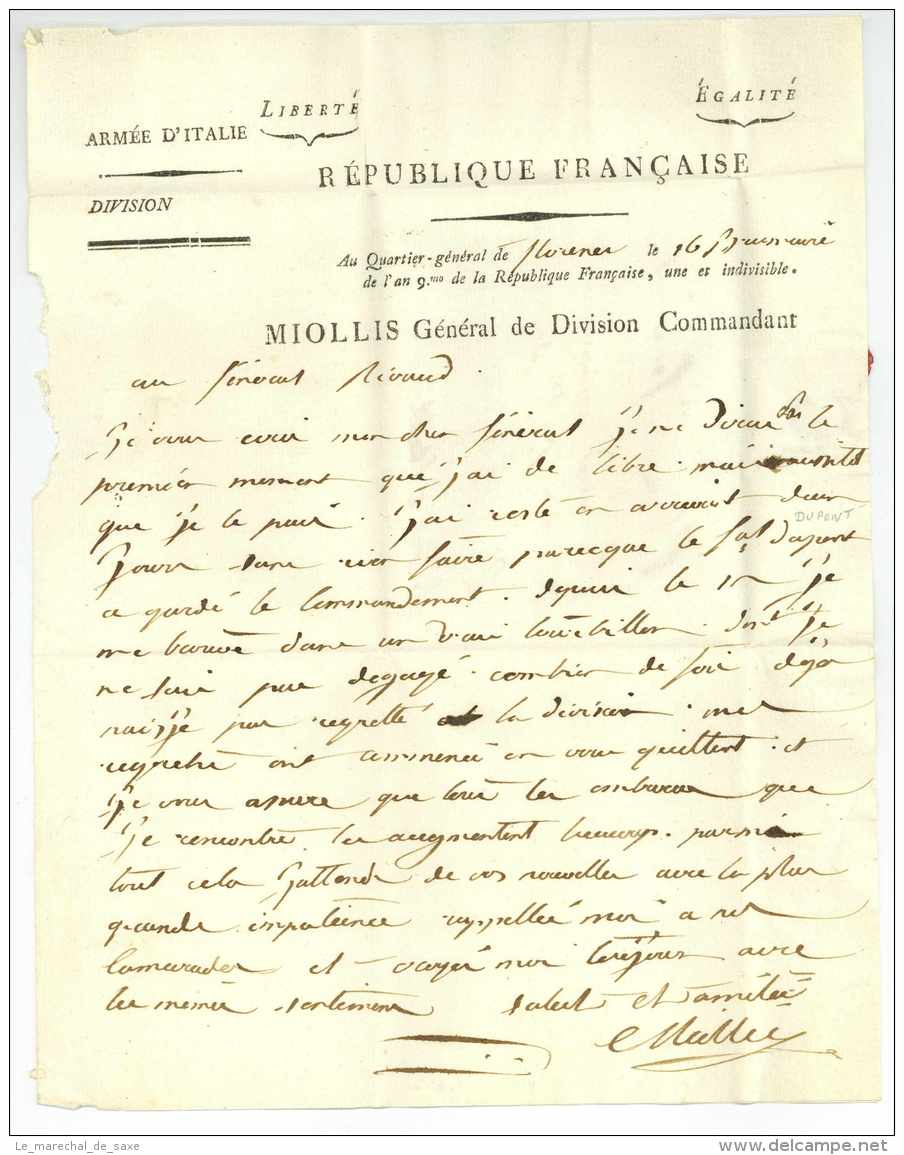 LIBERTÉ
ÉGALITÉ
ARMÉE D'ITALIE
RÉPUBLIQUE FRANÇAISE
DIVISION
Au Quartier-général de florence le 16 Brumaire
de l'an 9.me de la République Française, une et indivisible.
MIOLLIS Général de Division Commandant
au Général Rivaud.
Je vous écris mon cher Général Je ne dirai pas le
premier moment que j'ai de libre. mais aussitot
que Je le puis. J'ai resté en arrivant deux
DUPONT
Jours sans rien faire parceque le gal dupont
a gardé le Commandement. depuis le Je
me trouve dans un vrai tourbillon. dont Je
ne suis pas degagé. combien de fois déja
n'aisje pas regretté la division. mes
regrets ont commencé en vous quittant. et
Je vous assure que tous les embarras que
Je rencontre les augmentent beaucoup. parmi
tout cela J'attends de vos nouvelles avec la plus
grande impatience rappellés moi a nos
Camarades et croyés moi toujours avec
les mêmes sentimens salut et amitié
Miollis
Le_marechal_de_saxe
www.delcampe.net